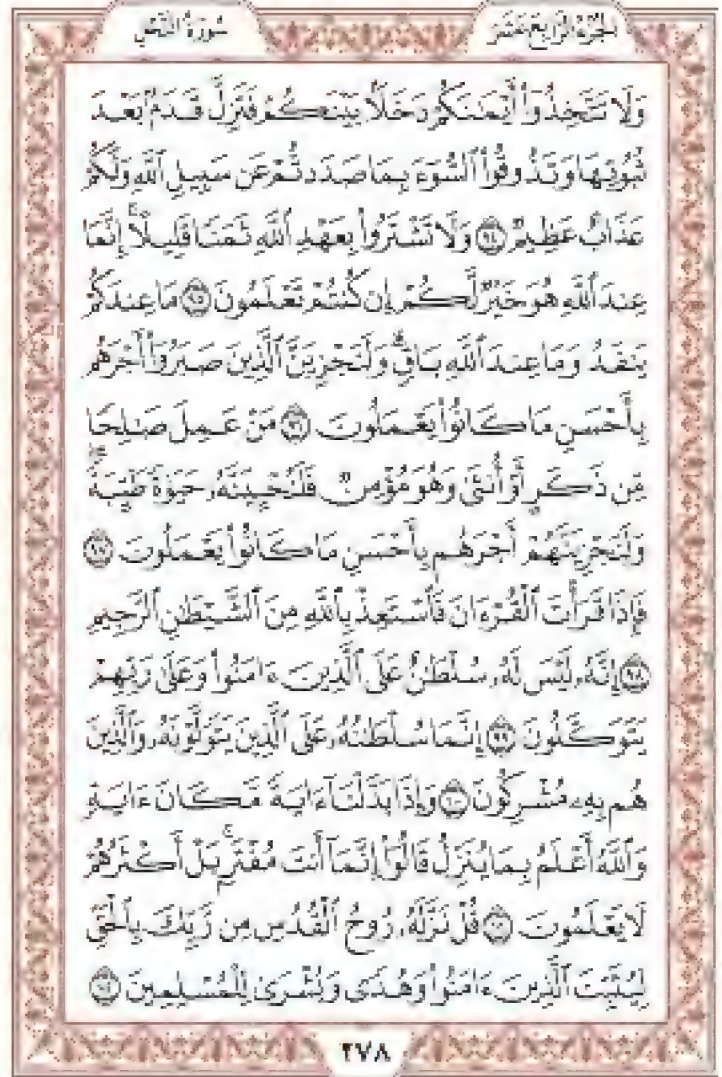 سُورَةُ النَّحْلِ
الجُزْءُ الرَّابِعَ عَشَرَ
وَلَا تَتَّخِذُوٓا۟ أَيْمَٰنَكُمْ دَخَلًۢا بَيْنَكُمْ فَتَزِلَّ قَدَمٌۢ بَعْدَ
ثُبُوتِهَا وَتَذُوقُوا۟ ٱلسُّوٓءَ بِمَا صَدَدتُّمْ عَن سَبِيلِ ٱللَّهِ وَلَكُمْ
عَذَابٌ عَظِيمٌ ٩٤ وَلَا تَشْتَرُوا۟ بِعَهْدِ ٱللَّهِ ثَمَنًا قَلِيلًا ۚ إِنَّمَا
عِندَ ٱللَّهِ هُوَ خَيْرٌ لَّكُمْ إِن كُنتُمْ تَعْلَمُونَ ٩٥ مَا عِندَكُمْ
يَنفَدُ وَمَا عِندَ ٱللَّهِ بَاقٍ ۗ وَلَنَجْزِيَنَّ ٱلَّذِينَ صَبَرُوٓا۟ أَجْرَهُم
بِأَحْسَنِ مَا كَانُوا۟ يَعْمَلُونَ ٩٦ مَنْ عَمِلَ صَٰلِحًا
مِّن ذَكَرٍ أَوْ أُنثَىٰ وَهُوَ مُؤْمِنٌ فَلَنُحْيِيَنَّهُۥ حَيَوٰةً طَيِّبَةً ۖ
وَلَنَجْزِيَنَّهُمْ أَجْرَهُم بِأَحْسَنِ مَا كَانُوا۟ يَعْمَلُونَ ٩٧
فَإِذَا قَرَأْتَ ٱلْقُرْءَانَ فَٱسْتَعِذْ بِٱللَّهِ مِنَ ٱلشَّيْطَٰنِ ٱلرَّجِيمِ
٩٨ إِنَّهُۥ لَيْسَ لَهُۥ سُلْطَٰنٌ عَلَى ٱلَّذِينَ ءَامَنُوا۟ وَعَلَىٰ رَبِّهِمْ
يَتَوَكَّلُونَ ٩٩ إِنَّمَا سُلْطَٰنُهُۥ عَلَى ٱلَّذِينَ يَتَوَلَّوْنَهُۥ وَٱلَّذِينَ
هُم بِهِۦ مُشْرِكُونَ ١٠٠ وَإِذَا بَدَّلْنَآ ءَايَةً مَّكَانَ ءَايَةٍ ۙ
وَٱللَّهُ أَعْلَمُ بِمَا يُنَزِّلُ قَالُوٓا۟ إِنَّمَآ أَنتَ مُفْتَرٍۭ ۚ بَلْ أَكْثَرُهُمْ
لَا يَعْلَمُونَ ١٠١ قُلْ نَزَّلَهُۥ رُوحُ ٱلْقُدُسِ مِن رَّبِّكَ بِٱلْحَقِّ
لِيُثَبِّتَ ٱلَّذِينَ ءَامَنُوا۟ وَهُدًى وَبُشْرَىٰ لِلْمُسْلِمِينَ ١٠٢
٢٧٨